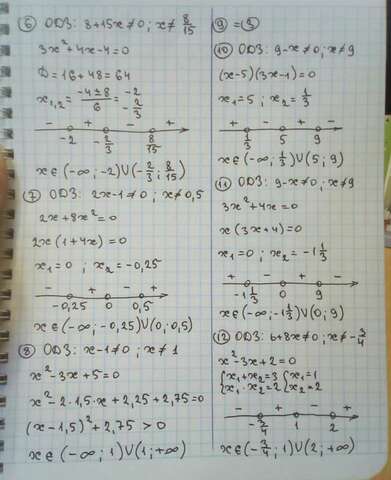 ⑥ ОДЗ: 8+15x≠0; x≠8/15
3x²+4x-4=0
D=16+48=64
x₁,₂=(-4±8)/6=-2
-2/3
+ - + -
-2 -2/3 8/15 x
x∈(-∞;-2)∪(-2/3; 8/15)
⑦ ОДЗ: 2x-1≠0; x≠0,5
2x+8x²=0
2x(1+4x)=0
x₁=0; x₂=-0,25
- + - +
-0,25 0 0,5 x
x∈(-∞;-0,25)∪(0;0,5)
⑧ ОДЗ: x-1≠0; x≠1
x²-3x+5=0
x²-2·1,5·x+2,25+2,75=0
(x-1,5)²+2,75>0
x∈(-∞;1)∪(1;+∞)
⑨ =③
⑩ ОДЗ: 9-x≠0; x≠9
(x-5)(3x-1)=0
x₁=5; x₂=1/3
+ - + -
1/3 5 9 x
x∈(-∞;1/3)∪(5;9)
⑪ ОДЗ: 9-x≠0; x≠9
3x²+4x=0
x(3x+4)=0
x₁=0; x₂=-1 1/3
+ - + -
-1 1/3 0 9 x
x∈(-∞;-1 1/3)∪(0;9)
⑫ ОДЗ: 6+8x≠0; x≠-3/4
x²-3x+2=0
{x₁+x₂=3 {x₁=1
x₁·x₂=2 x₂=2
- + - +
-3/4 1 2 x
x∈(-3/4;1)∪(2;+∞)